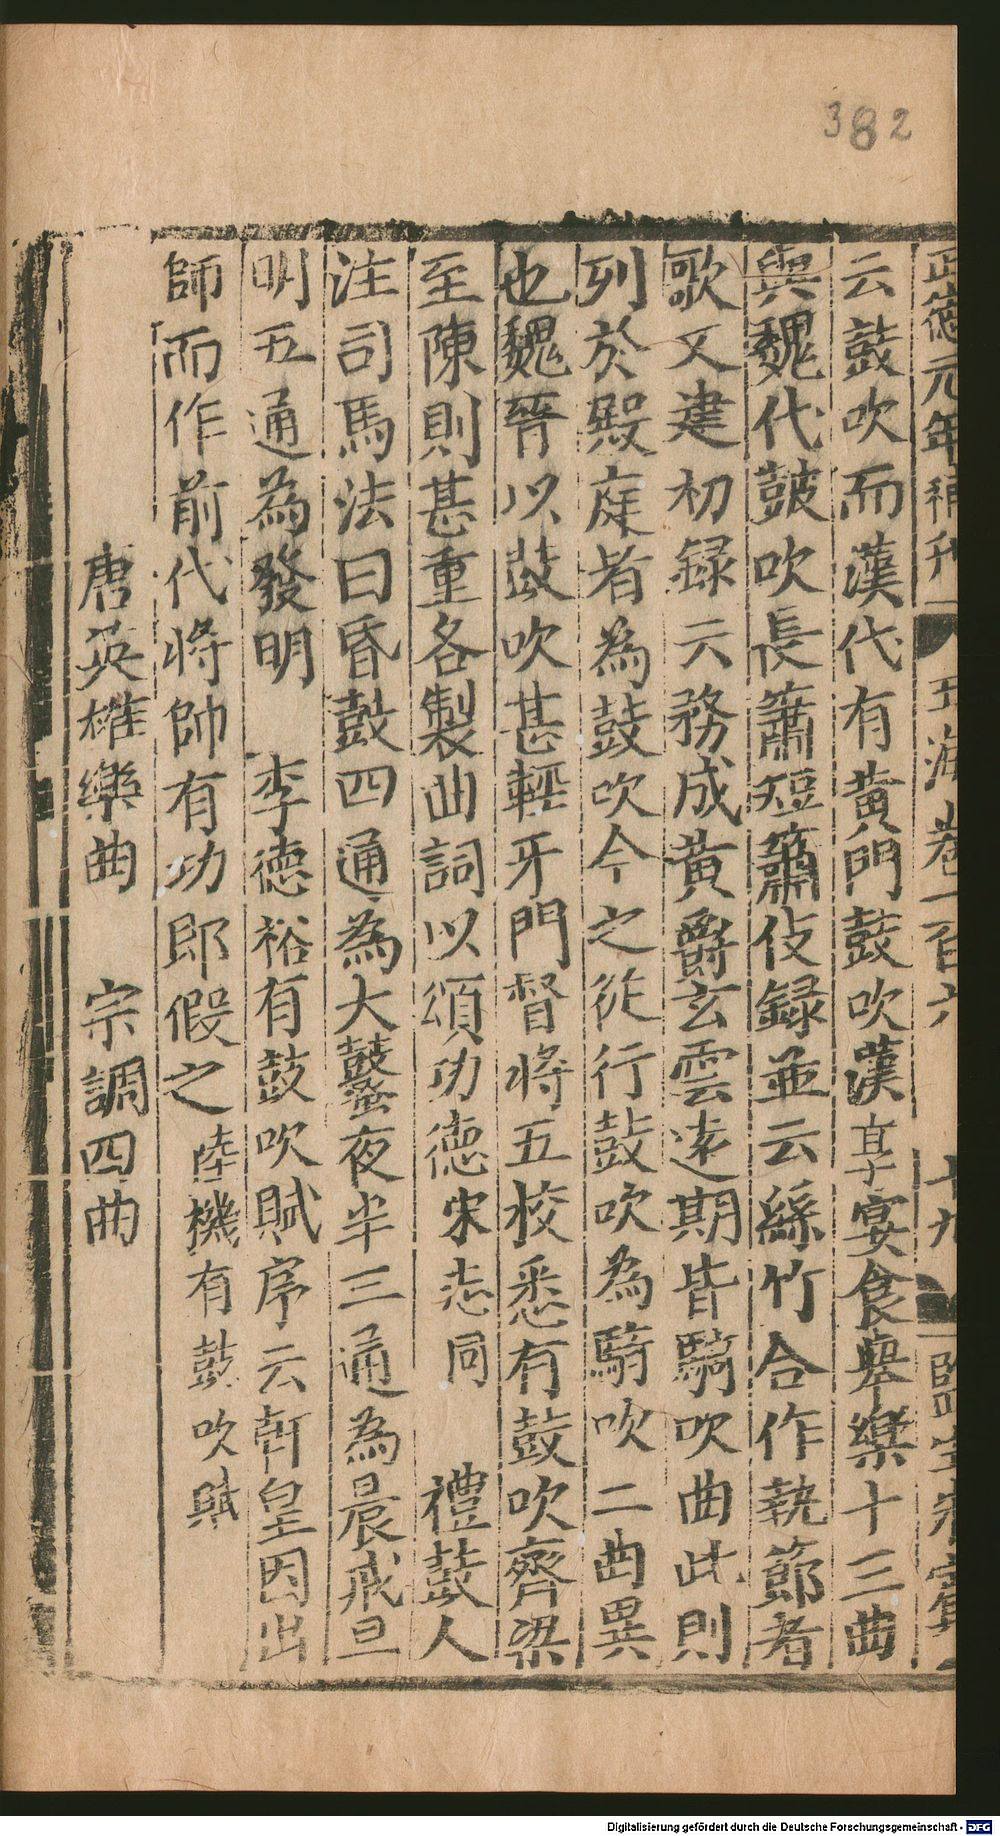 382
正德元年補刊 玉海卷一百六 十九 監生宋
云鼓吹而漢代有黃門鼓吹漢享宴食舉樂十三曲
與魏代鼓吹長簫短簫伎録並云絲竹合作執節者
歌又建初録云務成黃爵玄雲遠期皆騎吹曲此則
列於殿庭者為鼓吹今之從行鼓吹為騎吹二曲異
也魏晉以鼓吹甚輕牙門督將五校悉有鼓吹齊梁
至陳則甚重各製曲詞以頌功德宋志同 禮鼓人
注司馬法曰昏鼓四通為大鼜夜半三通為晨戒旦
明五通為發明 李德裕有鼓吹賦序云軒皇因出
師而作前代將帥有功郎假之陸機有鼓吹賦
唐英雄樂曲 宗調四曲
Digitalisierung gefördert durch die Deutsche Forschungsgemeinschaft - DFG